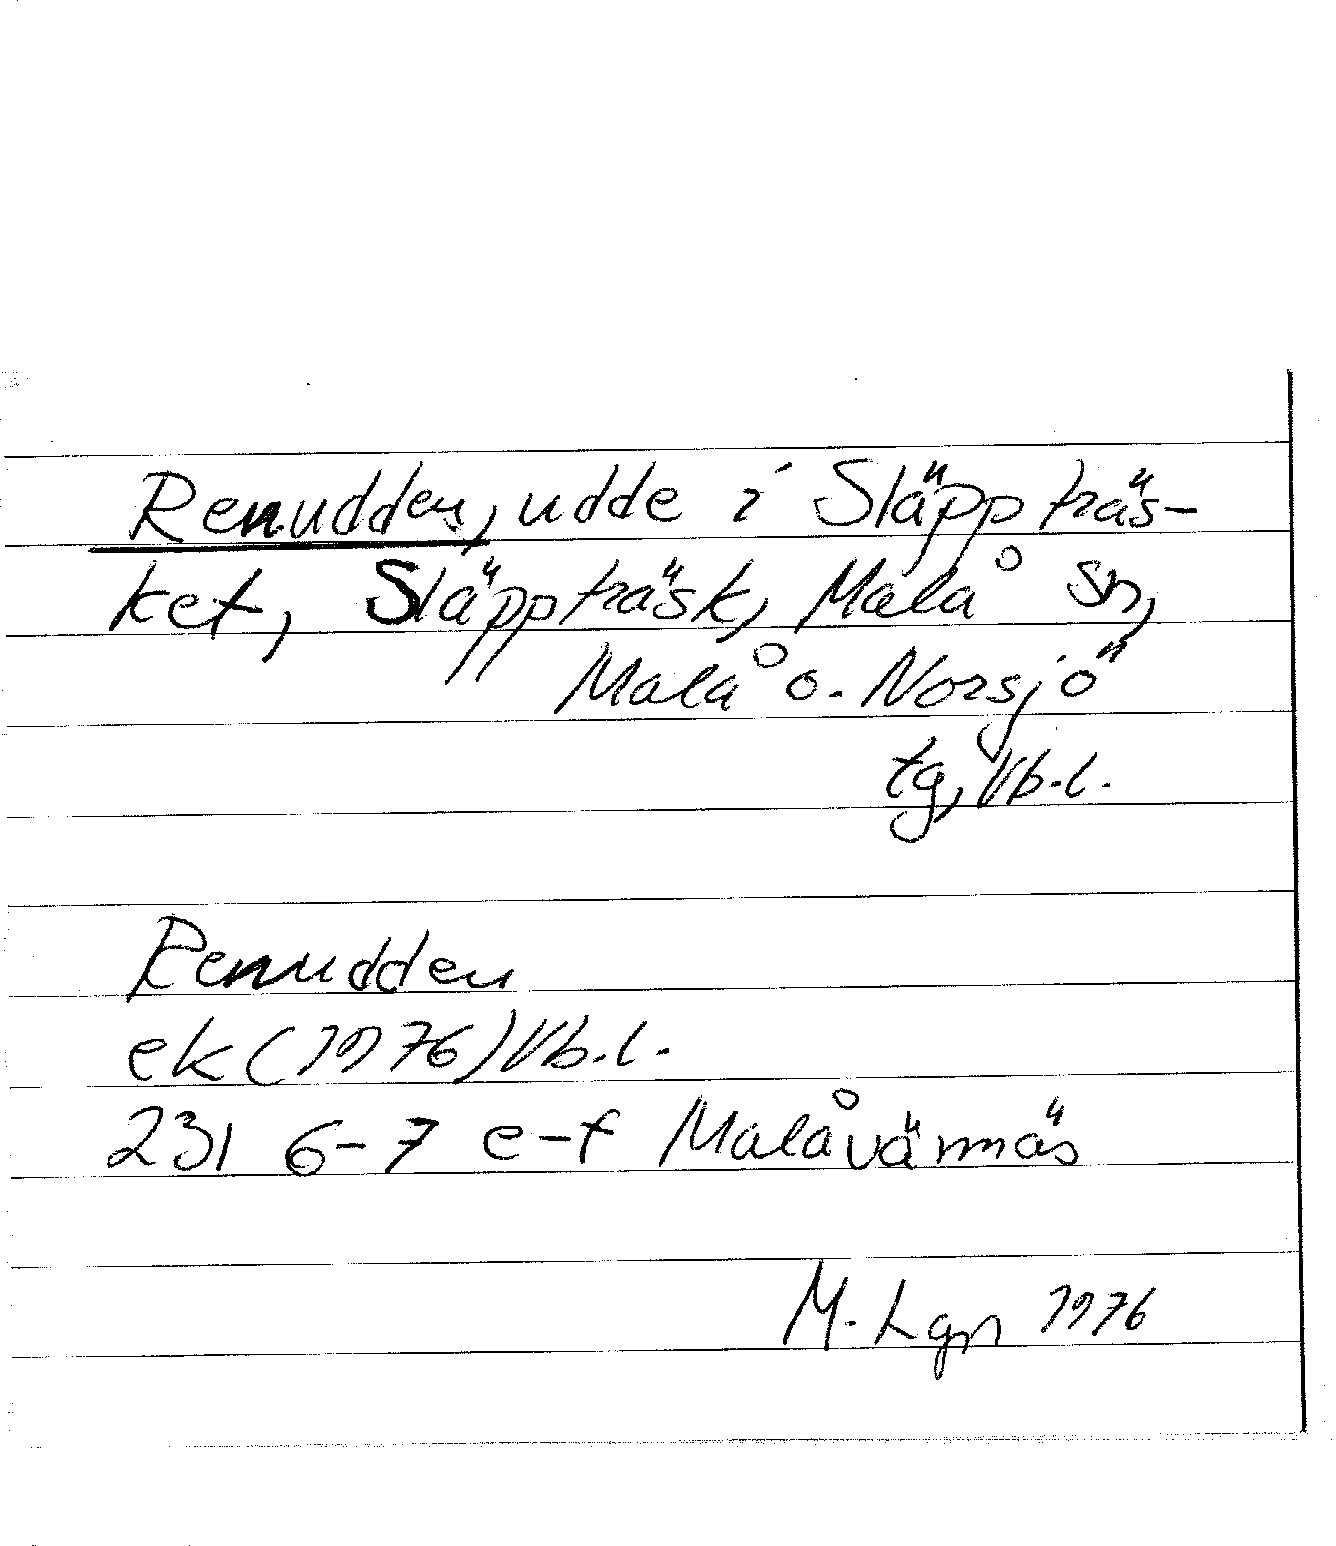 Renudden, udde i Släppträs-
ket, Släppträsk, Malå sn,
Malå o. Norsjö
tg, Vb.l.
Renudden
ek (1976) Vb.l.
231 6-7 e-f Malåvännäs
M. Lgn 1976